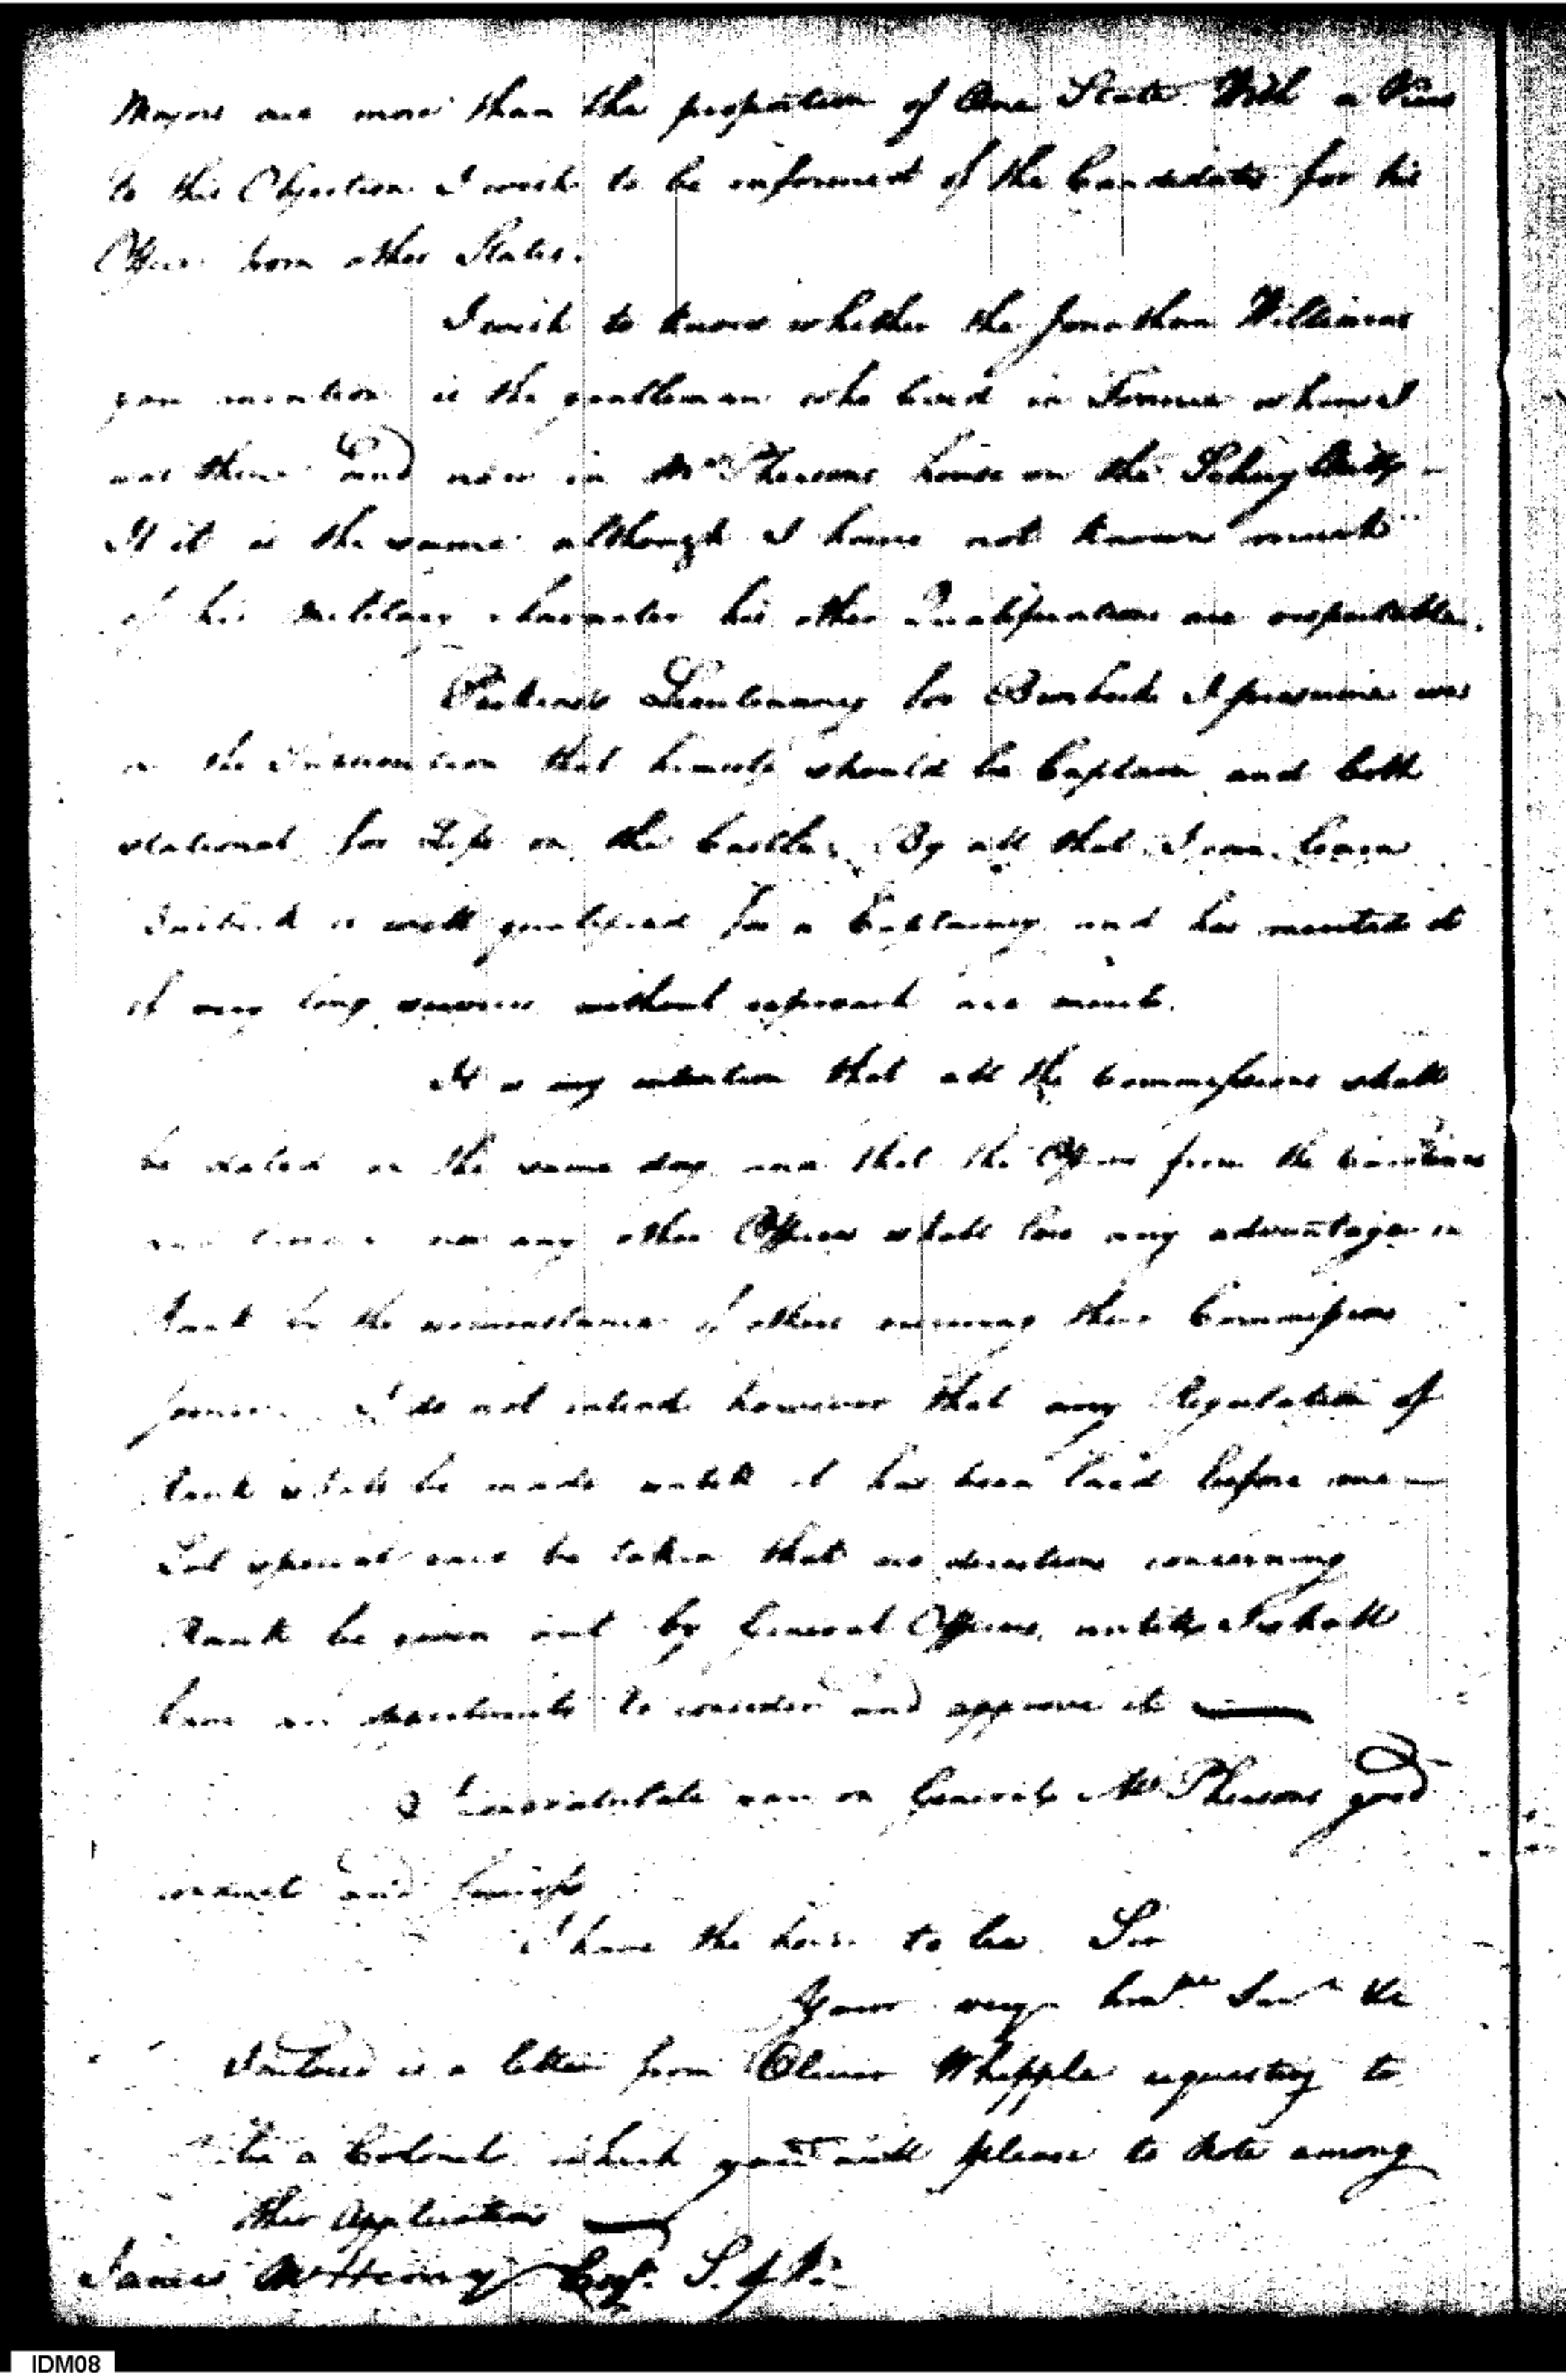 Majors are more than the proportion of One State. With a View
to this Objection I wish to be informed of the Candidates for his
Office from other States.
I wish to know whether the Jonathan Williams
you mention is the gentleman who lived in France when I
was there and now in Mr McPhersons house on the
If it is the same although I have not known much
of his military character his other Qualifications are respectable.
Lieutenancy for Burbeck I presume was
on the that himself should be Captain and both
stationed for Life on the Castle. By all that I can learn
is well qualified for a Captaincy and has merited it
if very long services without reproach are merit.
It is my intention that all the Commissions shall
be dated on the same day and that the Officers from the
nor any other Officers shall lose any advantage in
Rank by the circumstance of others receiving their Commissions
sooner. I do not intend however that any Regulation of
Rank shall be made untill it has been laid before me —
Let special care be taken that no directions concerning
Rank be given out by General Officers, untill I shall
have an opportunity to consider and approve it —
I Congratulate you on General McPhersons good
conduct and success
I have the honor to be Sir
Your very hum.ble Serv.t &c
Inclosed is a letter from Oliver Whipple requesting to
be a Colonel which you will please to note among
other Applications —
James McHenry Esq.r S. of W.
IDM08